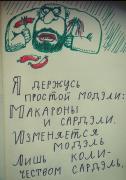 Я держусь
простой модэли:
Макароны
и сардэли.
Изменяется
модэль
Лишь коли-
чеством сардэль.